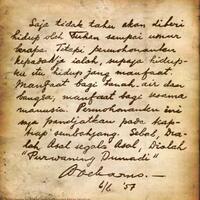 Saja tidak tahu akan diberi
hidup oleh Tuhan sampai umur
berapa. Tetapi permohonanku
kepadaNja ialah, supaja hidup-
ku itu hidup jang manfaat.
Manfaat bagi tanah air dan
bangsa, manfaat bagi sesama
manusia. Permohonanku ini
saja pandjatkan pada tiap-
tiap sembahjang. Sebab, Dia-
lah Asal segala Asal, Dialah
"Purwaning Dumadi"
Soekarno.-
6/6 '57